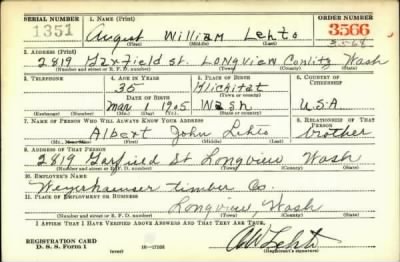 SERIAL NUMBER 1. NAME (Print) ORDER NUMBER
1351 August William Lehto 3566
(First) (Middle) (Last)
2. ADDRESS (Print)
2819 Garfield St. LONGVIEW Cowlitz Wash
(Number and street or R. F. D. number) (Town) (County) (State)
3. TELEPHONE 4. AGE IN YEARS 5. PLACE OF BIRTH 6. COUNTRY OF CITIZENSHIP
35 Klickitat
DATE OF BIRTH (Town or county)
Mar 1 1905 Wash U.S.A
(Exchange) (Number) (Mo.) (Day) (Yr.) (State or country)
7. NAME OF PERSON WHO WILL ALWAYS KNOW YOUR ADDRESS 8. RELATIONSHIP OF THAT PERSON
Albert John Lehto brother
(Mr., Mrs., Miss) (First) (Middle) (Last)
9. ADDRESS OF THAT PERSON
2819 Garfield St Longview Wash
(Number and street or R. F. D. number) (Town) (County) (State)
10. EMPLOYER'S NAME
Weyerhaeuser timber Co.
11. PLACE OF EMPLOYMENT OR BUSINESS
Longview, Wash
(Number and street or R. F. D. number) (Town) (County) (State)
I AFFIRM THAT I HAVE VERIFIED ABOVE ANSWERS AND THAT THEY ARE TRUE.
REGISTRATION CARD
D. S. S. Form 1 (over) 16—17105 (Registrant's signature)
A W Lehto